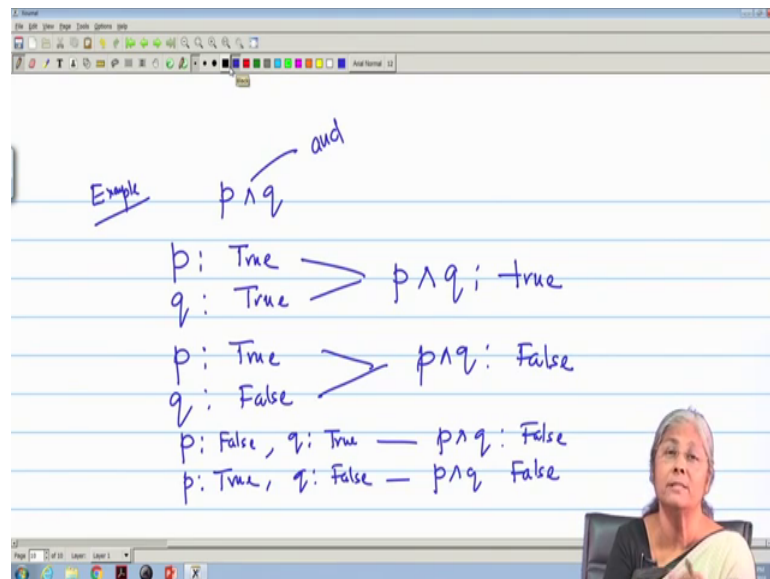 Journal
File Edit View Page Tools Options Help
Arial Normal 12
Black
and
Example p ∧ q
p : True
q : True
p ∧ q ; true
p : True
q : False
p ∧ q : False
p : False , q : True — p ∧ q : False
p : True , q : False — p ∧ q False
Page 10 of 10 Layer: Layer 1